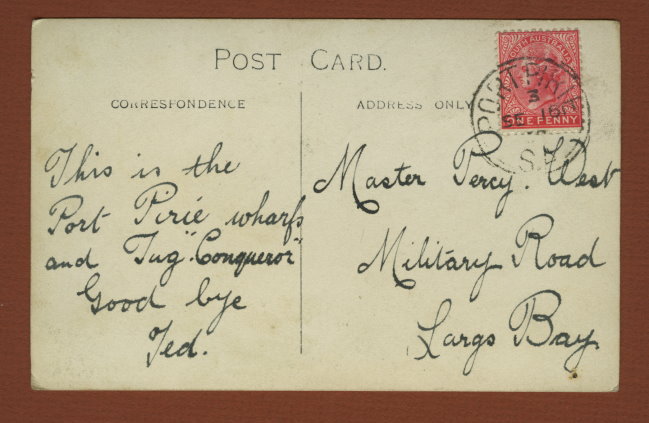 POST CARD.
CORRESPONDENCE
ADDRESS ONLY
SOUTH AUSTRALIA
ONE PENNY
PORT PIRI
3
S.A
This is the
Port Pirie wharfs
and Tug "Conqueror"
Good bye
Ted.
Master Percy. West
Military Road
Largs Bay.